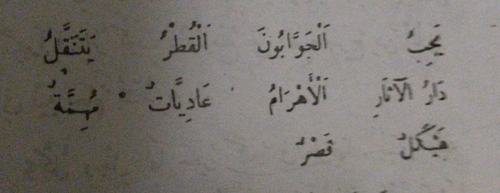 يَجِبُ اَلْجَوَّابُونَ اَلْقُطْرُ يَتَنَقَّلُ
دَارُ الْآثَارِ اَلْأَهْرَامُ عَادِيَّاتٌ مُهِمَّةٌ
هَيْكَلٌ قَصْرٌ